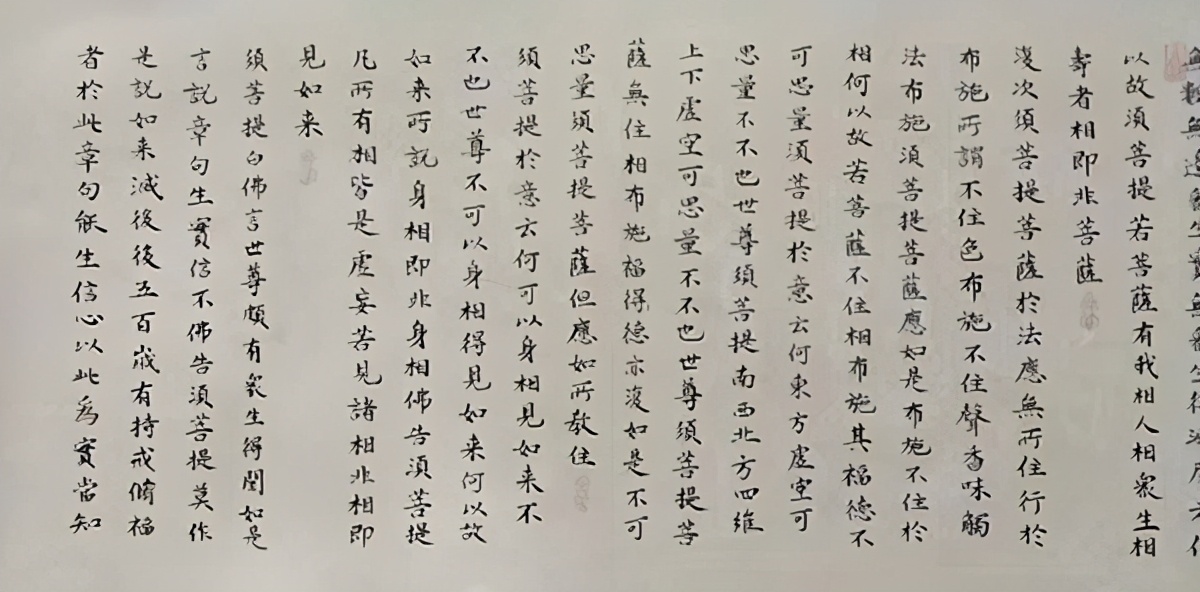 無數無邊衆生實無衆生得滅度
以故須菩提若菩薩有我相人相衆生相
壽者相即非菩薩
復次須菩提菩薩於法應無所住行於
布施所謂不住色布施不住聲香味觸
法布施須菩提菩薩應如是布施不住於
相何以故若菩薩不住相布施其福德不
可思量須菩提於意云何東方虛空可
思量不不也世尊須菩提南西北方四維
上下虛空可思量不不也世尊須菩提菩
薩無住相布施福得德亦復如是不可
思量須菩提菩薩但應如所教住
須菩提於意云何可以身相見如来不
不也世尊不可以身相得見如来何以故
如来所說身相即非身相佛告須菩提
凡所有相皆是虛妄若見諸相非相即
見如来
須菩提白佛言世尊頗有衆生得聞如是
言說章句生實信不佛告須菩提莫作
是說如来滅後後五百歲有持戒脩福
者於此章句能生信心以此為實當知